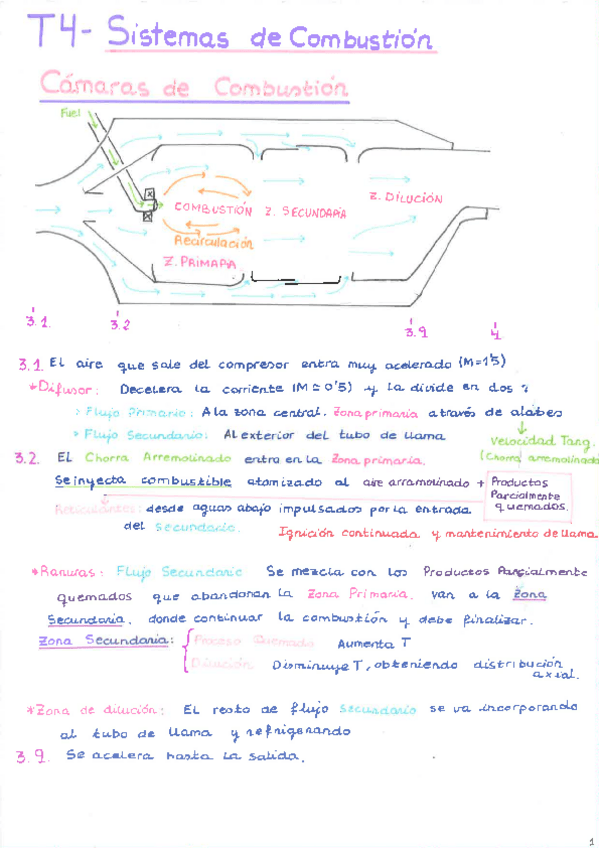 T4- Sistemas de Combustión
Cámaras de Combustión
Fuel
COMBUSTIÓN Z. SECUNDARIA
Z. DILUCIÓN
Recirculación
Z. PRIMARIA
3.1. 3.2 3.9 4
3.1 El aire que sale del compresor entra muy acelerado (M=1'5)
*Difusor: Decelera la corriente (M≃0'5) y la divide en dos:
> Flujo Primario: A la zona central. Zona primaria a través de alabes
> Flujo Secundario: Al exterior del tubo de llama
Velocidad Tang.
(Chorro arremolinado
3.2. El Chorro Arremolinado entra en la Zona primaria.
Se inyecta combustible atomizado al aire arramolinado +
Productos
Parcialmente
quemados.
desde aguas abajo impulsados por la entrada
del secundario.
Ignición continuada y mantenimiento de llama
*Ranuras: Flujo Secundario Se mezcla con los Productos Parcialmente
quemados que abandonan la Zona Primaria. van a la Zona
Secundaria. donde continuar la combustión y debe finalizar.
Zona Secundaria:
Proceso Quemado Aumenta T
Dilución Disminuye T, obteniendo distribución
axial.
*Zona de dilución: El resto de flujo Secundario se va incorporando
al tubo de llama y refrigerando
3.9. Se acelera hasta la salida.
1